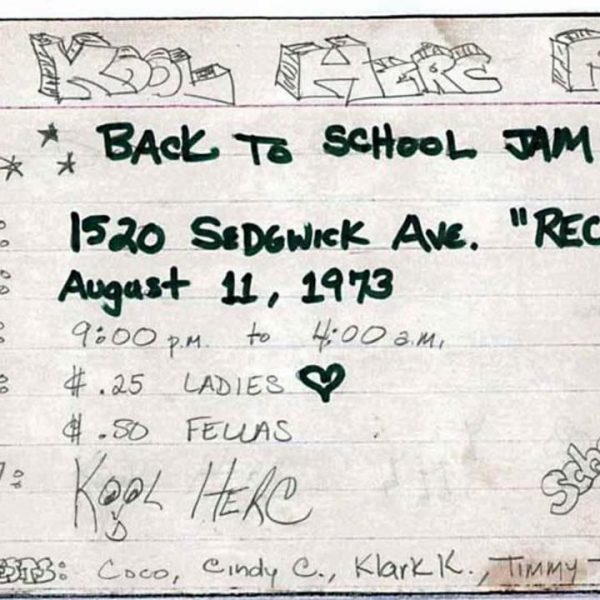 KOOL HERC
BACK TO SCHOOL JAM
1520 SEDGWICK AVE. "REC
August 11, 1973
9:00 p.m. to 4:00 a.m.
$.25 LADIES ♥
$.50 FELLAS
KOOL HERC
Sch
ESTS: Coco, Cindy C., Klark K., TIMMY T